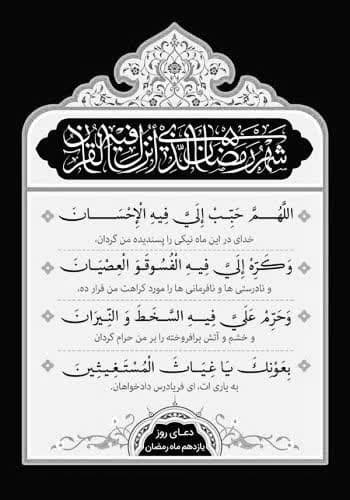 شَهْرُ رَمَضَانَ الَّذِي أُنْزِلَ فِيهِ الْقُرْآنُ
اللَّهُمَّ حَبِّبْ إِلَيَّ فِيهِ الْإِحْسَانَ
خدای در این ماه نیکی را پسندیده من گردان،
وَ كَرِّهْ إِلَيَّ فِيهِ الْفُسُوقَ وَ الْعِصْيَانَ
و نادرستی ها و نافرمانی ها را مورد کراهت من قرار ده،
وَ حَرِّمْ عَلَيَّ فِيهِ السَّخَطَ وَ النِّيرَانَ
و خشم و آتش برافروخته را بر من حرام گردان
بِعَوْنِكَ يَا غِيَاثَ الْمُسْتَغِيثِينَ
به یاری ات، ای فریادرس دادخواهان.
دعای روز
یازدهم ماه رمضان